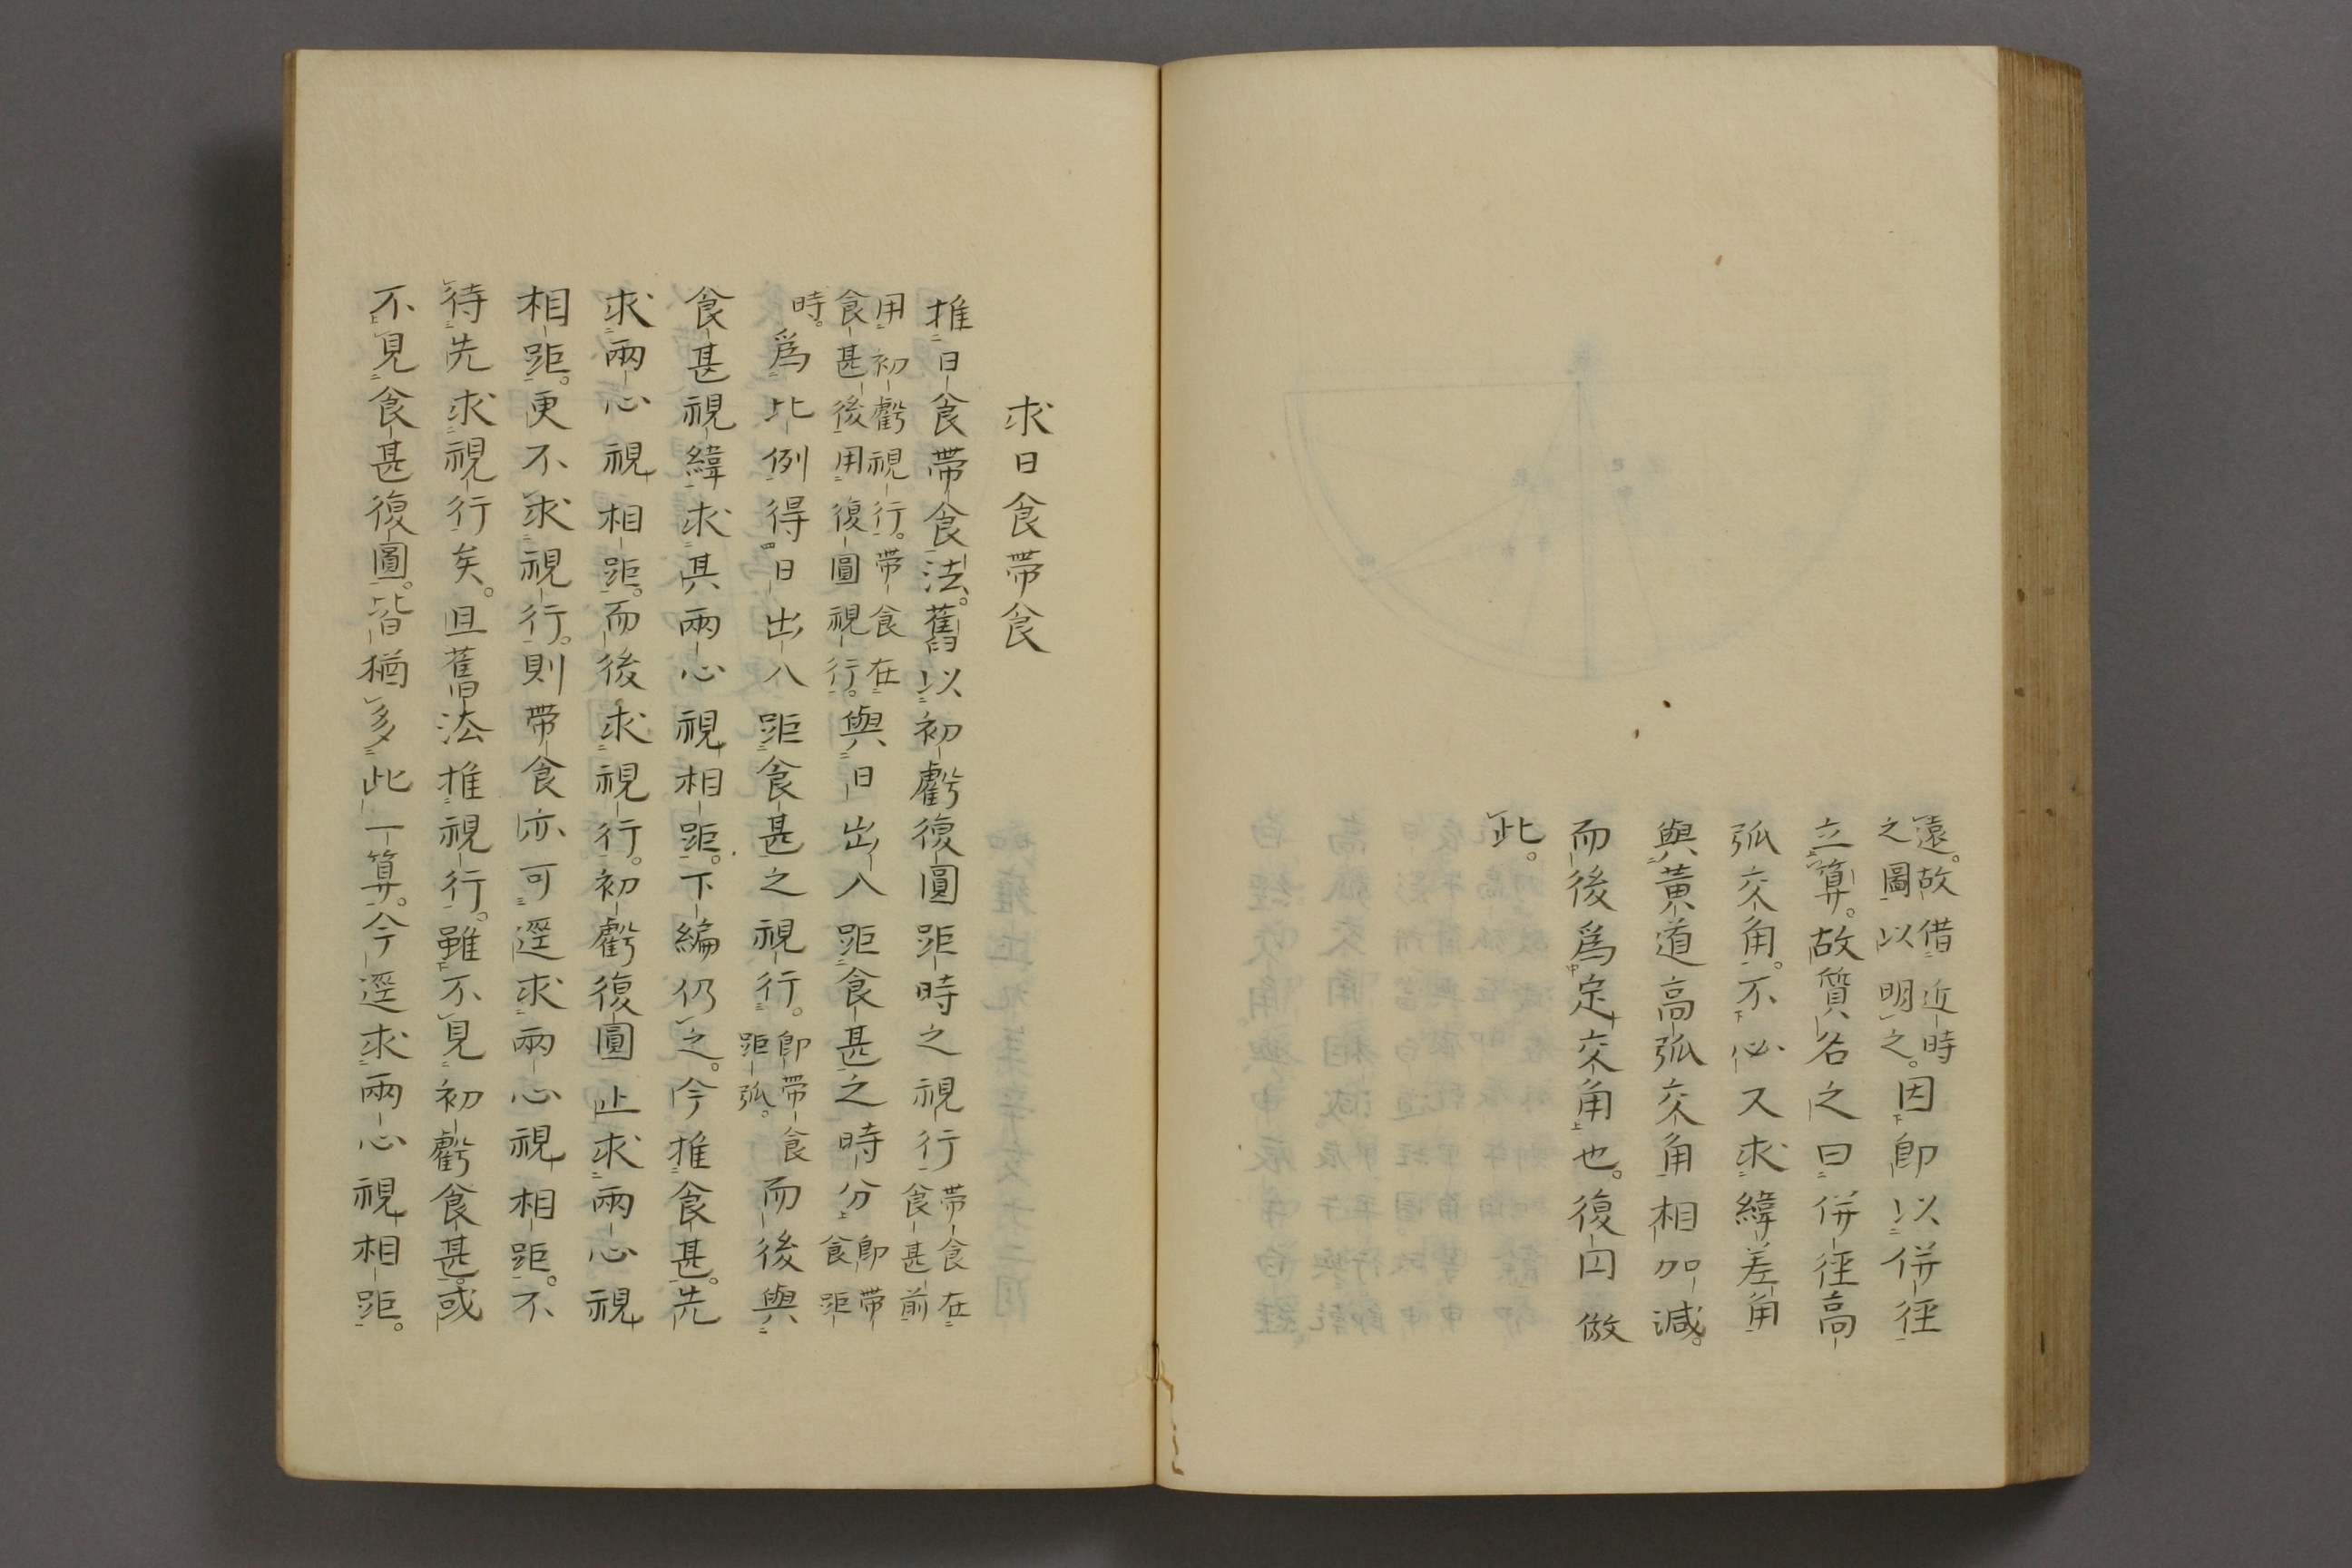 遠。故借近時
之圖以明之。因即以併徑
立算。故質名之曰併徑高
弧交角。不必又求緯差角
與黃道高弧交角相加減。
而後爲定交角也。復円倣
此。
求日食帶食
推日食帶食法。舊以初虧復圓距時之視行帶食在
食甚前
用初虧視行。帶食在
食甚後用復圓視行。與日出入距食甚之時分即帶
食距
時。爲比例得日出入距食甚之視行。即帶食
距弧。而後與
食甚視緯求其兩心視相距。下編仍之。今推食甚。先
求兩心視相距。而後求視行。初虧復圓止求兩心視
相距。更不求視行。則帶食亦可逕求兩心視相距。不
待先求視行矣。且舊法推視行。雖不見初虧食甚。或
不見食甚復圓。皆猶多此一算。今逕求兩心視相距。